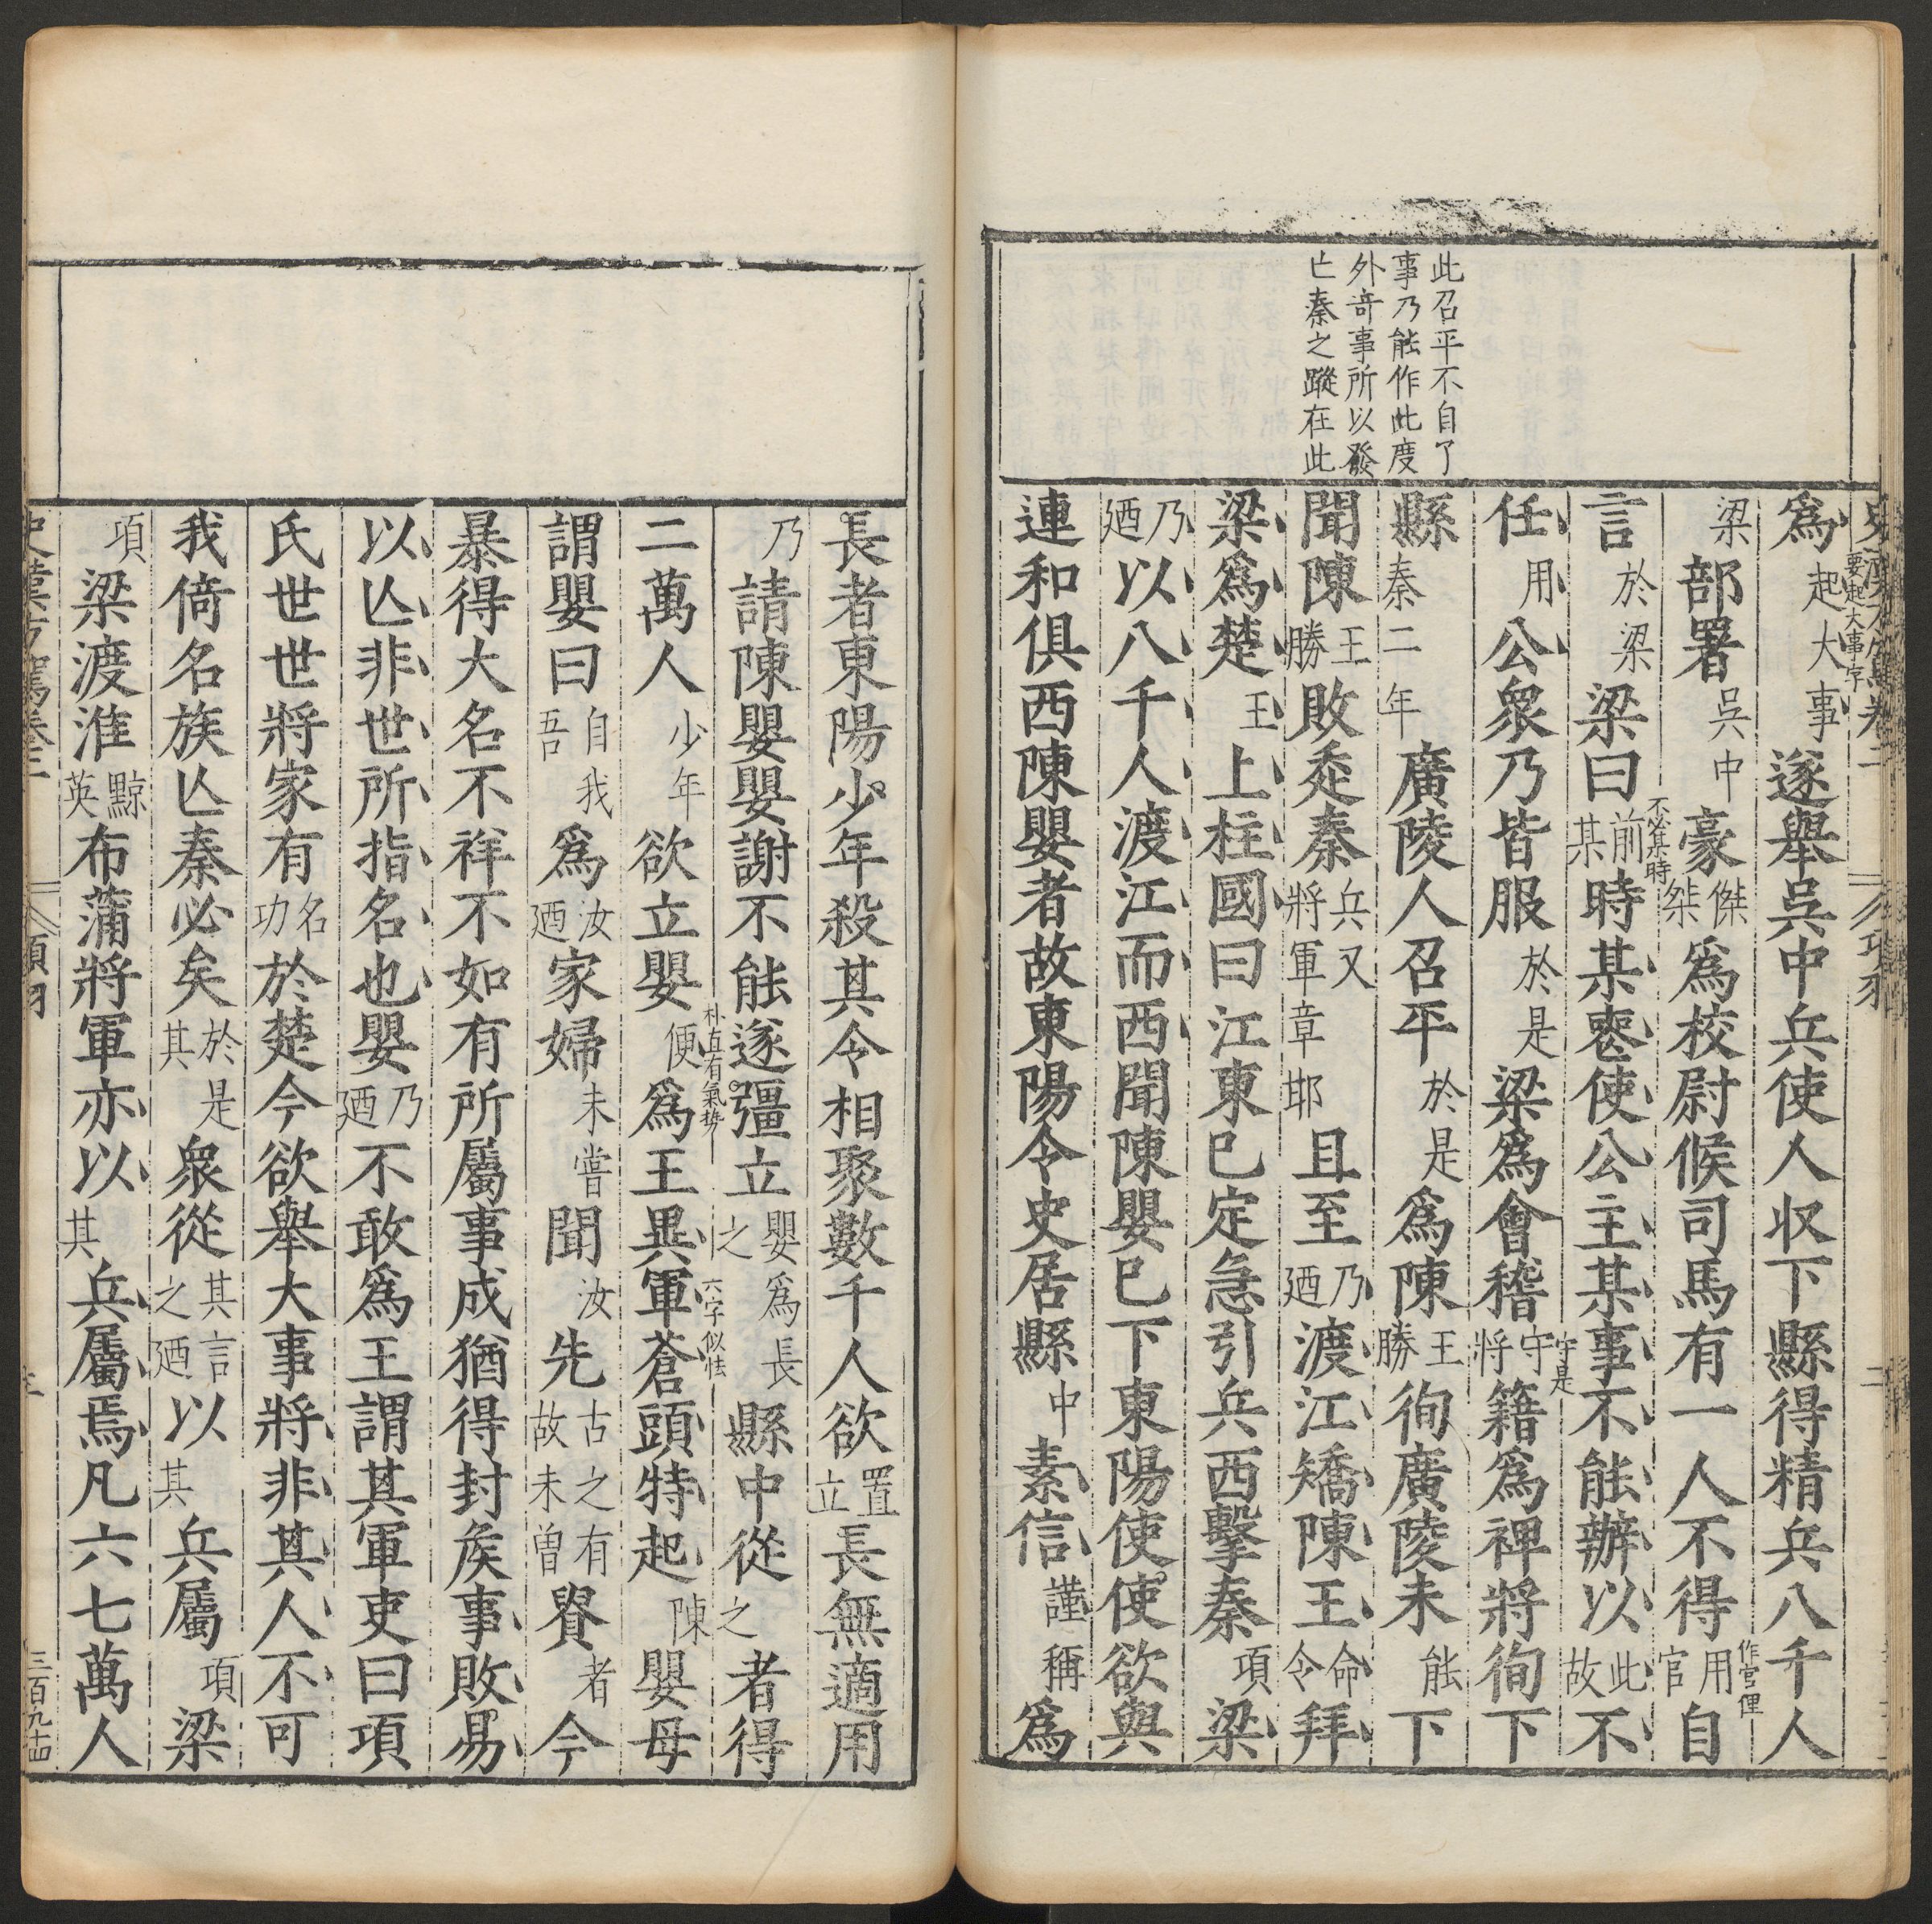 史漢方駕卷二
項羽
二
此召平不自了
事乃能作此度
外奇事所以發
亡秦之蹤在此
爲起大事遂舉吳中兵使人収下縣得精兵八千人
要起大事字
梁部署吳中豪傑桀爲校尉候司馬有一人不得用官自
作官俚
言於梁梁曰前某時某喪使公主某事不能辦以此故不
不必某時
任用公衆乃皆服於是梁爲會稽守將籍爲裨將徇下
守是
縣秦二年廣陵人召平於是爲陳王勝徇廣陵未能下
聞陳王勝敗走秦兵又將軍章邯且至乃廼渡江矯陳王命令拜
梁爲楚王上柱國曰江東已定急引兵西擊秦項梁
乃廼以八千人渡江而西聞陳嬰已下東陽使使欲與
連和俱西陳嬰者故東陽令史居縣中素信謹稱爲
長者東陽少年殺其令相聚數千人欲置立長無適用
乃請陳嬰嬰謝不能遂彊立嬰之爲長縣中從之者得
朴直有氣勢
二萬人少年欲立嬰便爲王異軍蒼頭特起陳嬰母
六字似怯
謂嬰曰自吾我爲汝廼家婦未嘗聞汝先古故之未有曾貴者今
暴得大名不祥不如有所屬事成猶得封矦事敗易
以亾非世所指名也嬰乃廼不敢爲王謂其軍吏曰項
氏世世將家有名功於楚今欲舉大事將非其人不可
我倚名族亾秦必矣於其是衆從其之言廼以其兵屬項梁
項梁渡淮黥英布蒲將軍亦以其兵屬焉凡六七萬人
史漢方駕卷二
項羽
三百九十四